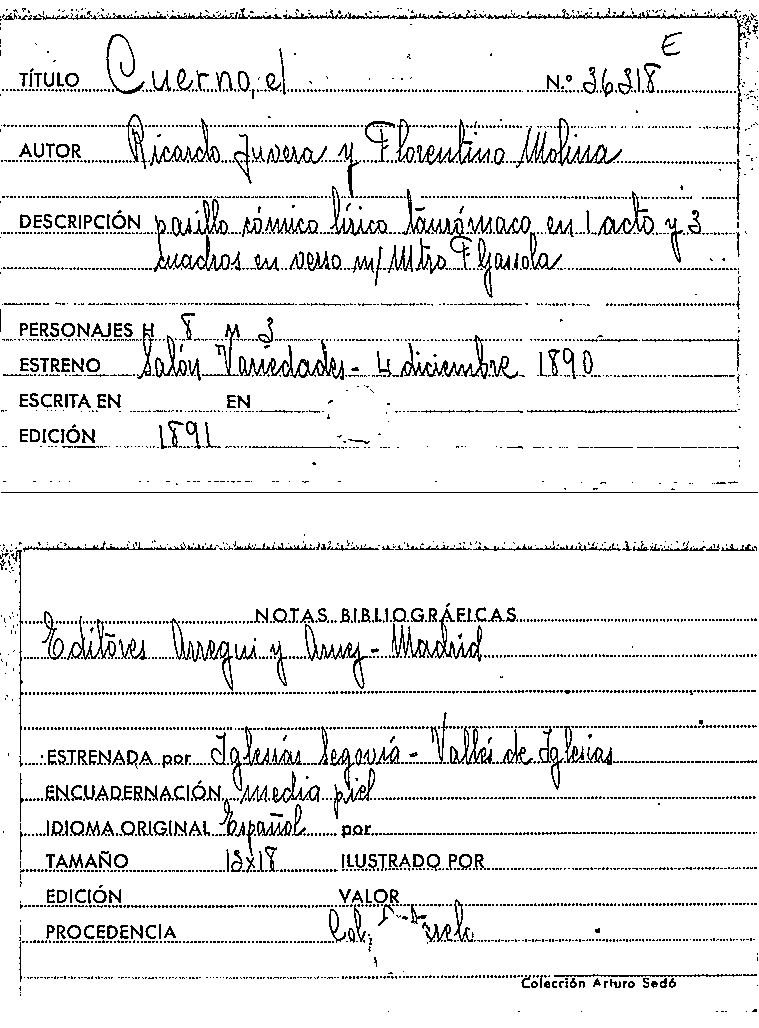 E
TÍTULO Cuerno, el N.º 36318
AUTOR Ricardo Juvera y Florentino Molina
DESCRIPCIÓN pasillo cómico lírico taurómaco en 1 acto y 3
cuadros en verso m/ Mtro
PERSONAJES H 8 M 3
ESTRENO Salón Variedades - 4 diciembre 1890
ESCRITA EN EN
EDICIÓN 1891
NOTAS BIBLIOGRÁFICAS
Editores Arregui y Aruej - Madrid
ESTRENADA por Iglesias Segovia - Vallés de Iglesias
ENCUADERNACIÓN media piel
IDIOMA ORIGINAL Español por
TAMAÑO 13x18 ILUSTRADO POR
EDICIÓN VALOR
PROCEDENCIA Col.
Colección Arturo Sedó